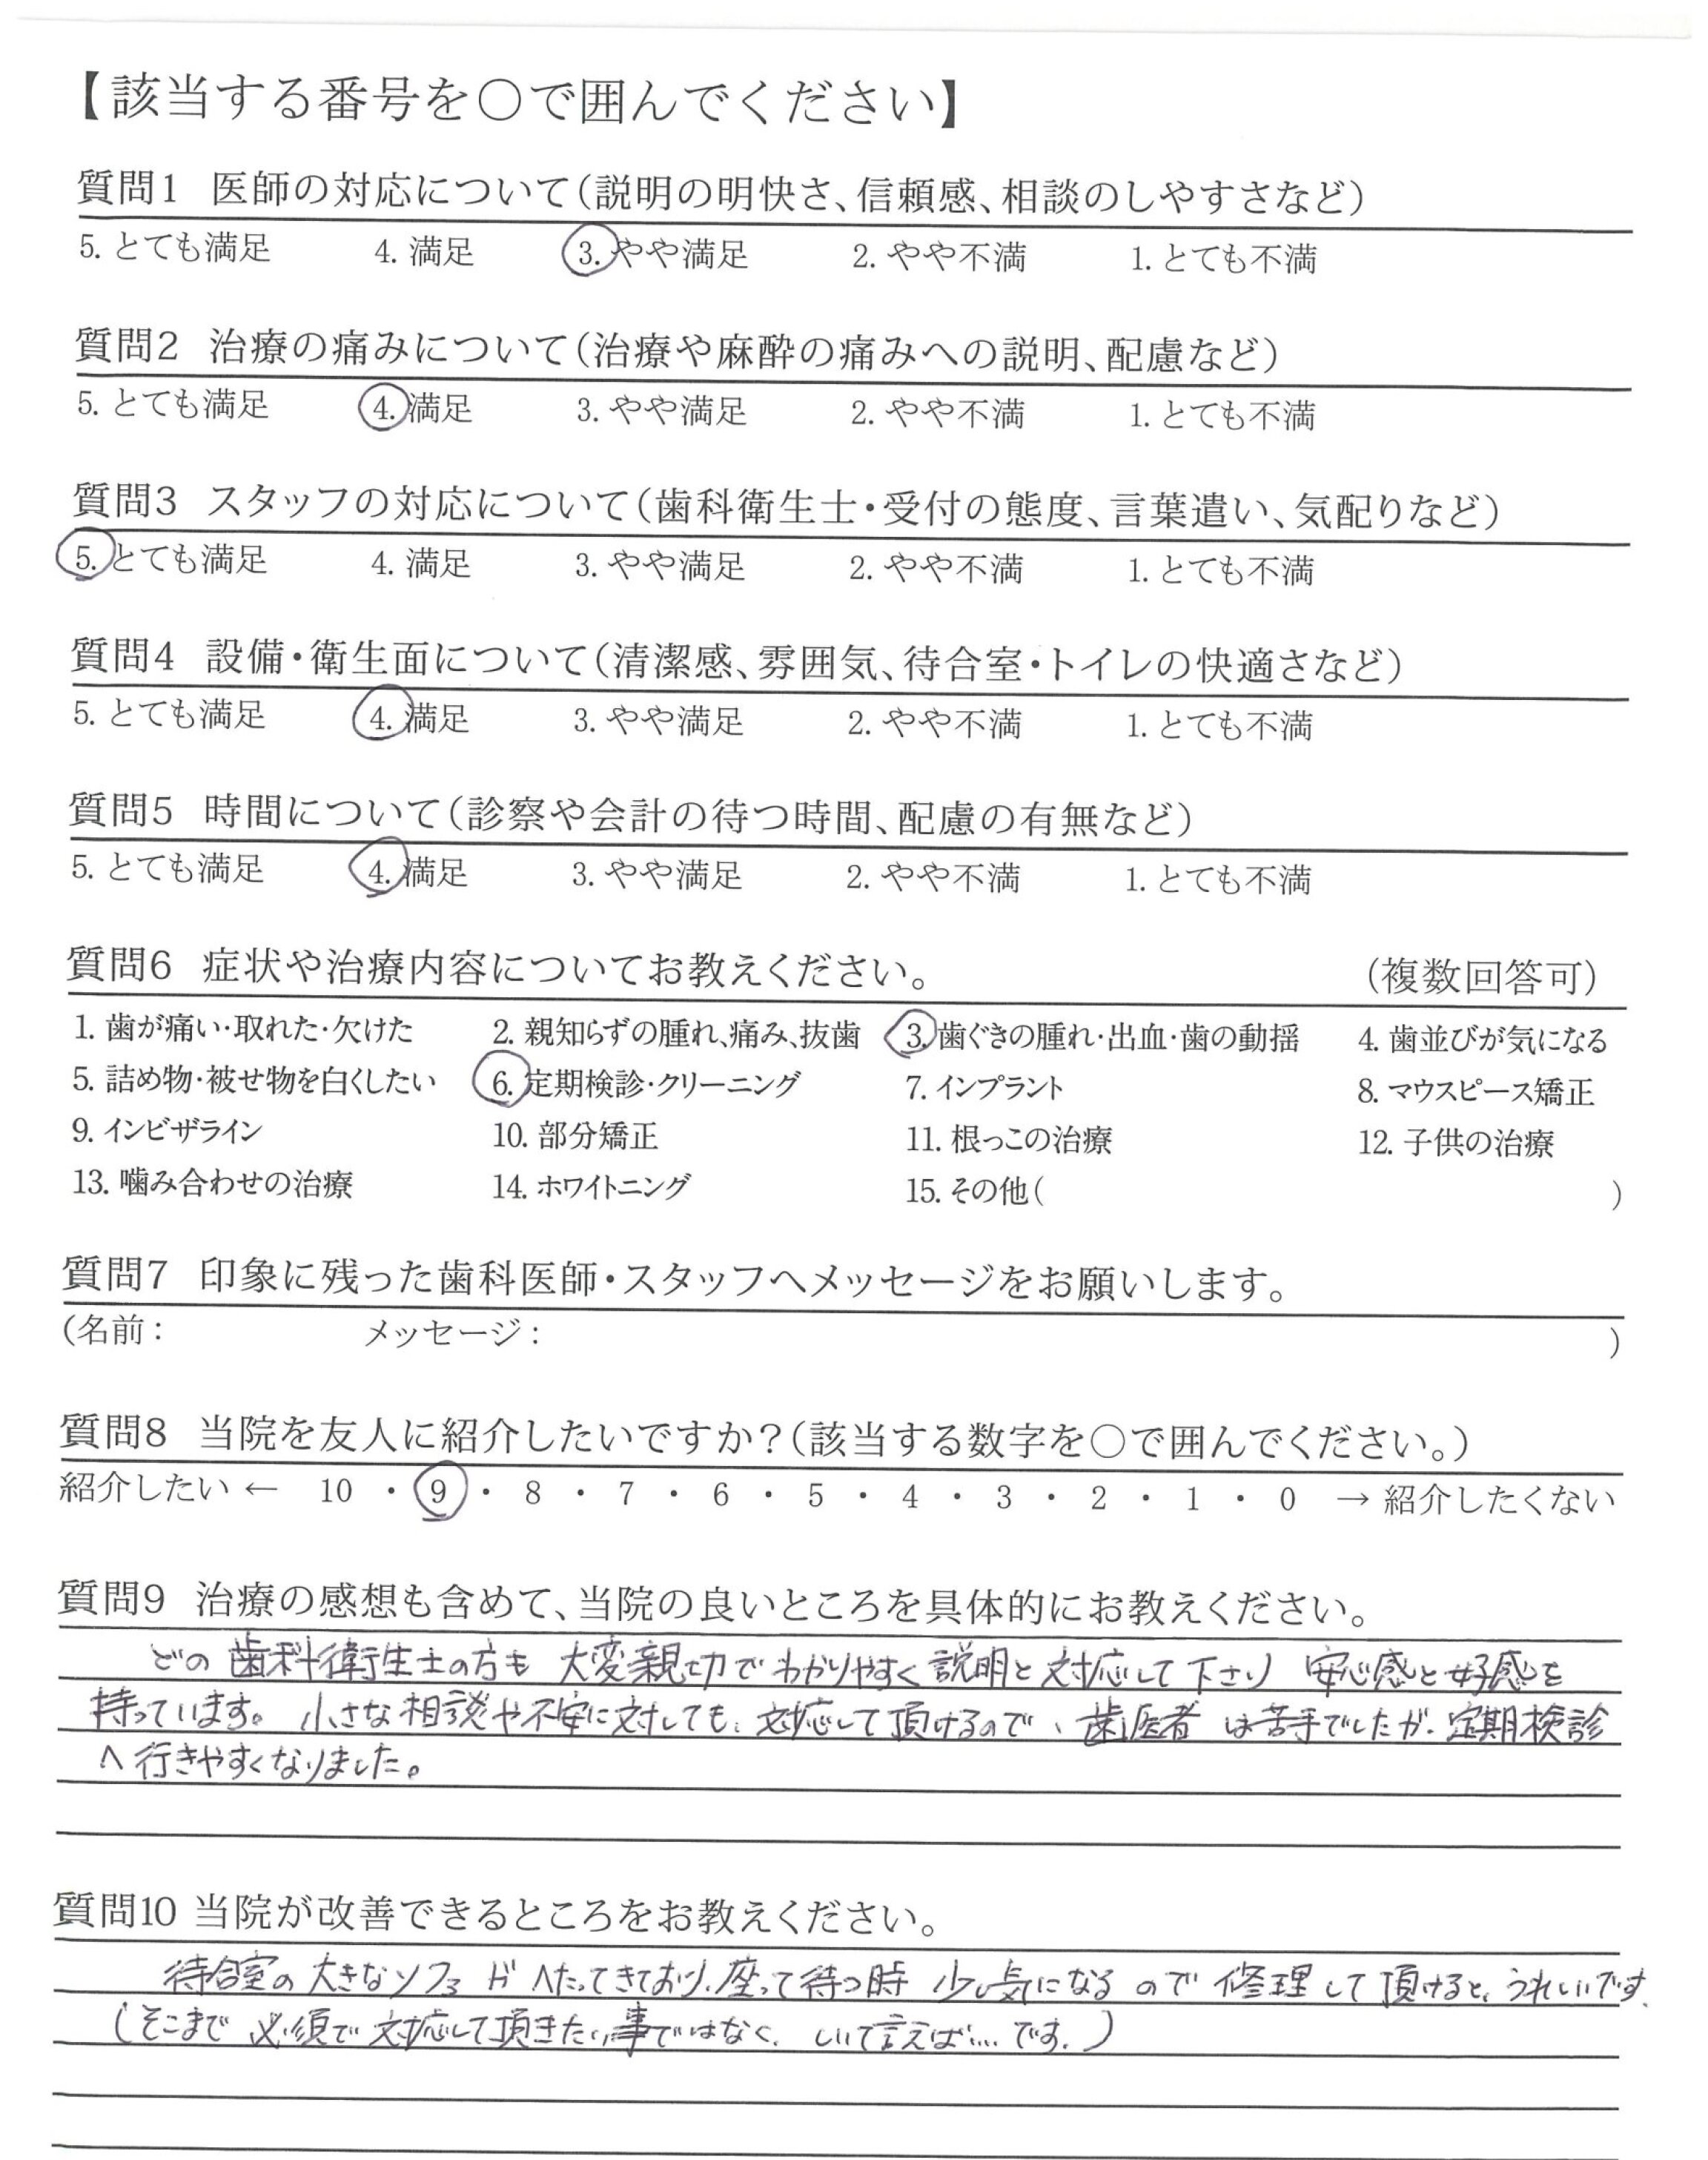 【該当する番号を〇で囲んでください】
質問1 医師の対応について(説明の明快さ、信頼感、相談のしやすさなど)
5. とても満足 4. 満足 3. やや満足 2. やや不満 1. とても不満
質問2 治療の痛みについて(治療や麻酔の痛みへの説明、配慮など)
5. とても満足 4. 満足 3. やや満足 2. やや不満 1. とても不満
質問3 スタッフの対応について(歯科衛生士・受付の態度、言葉遣い、気配りなど)
5. とても満足 4. 満足 3. やや満足 2. やや不満 1. とても不満
質問4 設備・衛生面について(清潔感、雰囲気、待合室・トイレの快適さなど)
5. とても満足 4. 満足 3. やや満足 2. やや不満 1. とても不満
質問5 時間について(診察や会計の待つ時間、配慮の有無など)
5. とても満足 4. 満足 3. やや満足 2. やや不満 1. とても不満
質問6 症状や治療内容についてお教えください。 (複数回答可)
1. 歯が痛い・取れた・欠けた 2. 親知らずの腫れ、痛み、抜歯 3. 歯ぐきの腫れ・出血・歯の動揺 4. 歯並びが気になる
5. 詰め物・被せ物を白くしたい 6. 定期検診・クリーニング 7. インプラント 8. マウスピース矯正
9. インビザライン 10. 部分矯正 11. 根っこの治療 12. 子供の治療
13. 噛み合わせの治療 14. ホワイトニング 15. その他( )
質問7 印象に残った歯科医師・スタッフへメッセージをお願いします。
(名前: メッセージ: )
質問8 当院を友人に紹介したいですか?(該当する数字を〇で囲んでください。)
紹介したい ← 10 ・ 9 ・ 8 ・ 7 ・ 6 ・ 5 ・ 4 ・ 3 ・ 2 ・ 1 ・ 0 → 紹介したくない
質問9 治療の感想も含めて、当院の良いところを具体的にお教えください。
どの歯科衛生士の方も 大変親切で わかりやすく 説明と 対応して下さり 安心感と好感を
持っています。 小さな相談や不安に対しても、対応して頂けるので、歯医者 は苦手でしたが、定期検診
へ行きやすくなりました。
質問10 当院が改善できるところをお教えください。
待合室の 大きなソファ が へたってきており、座って待つ時 少し気になる ので 修理して頂けると、うれしいです。
(そこまで 必須で 対応して頂きたい事ではなく、 しいて言えば.... です。)